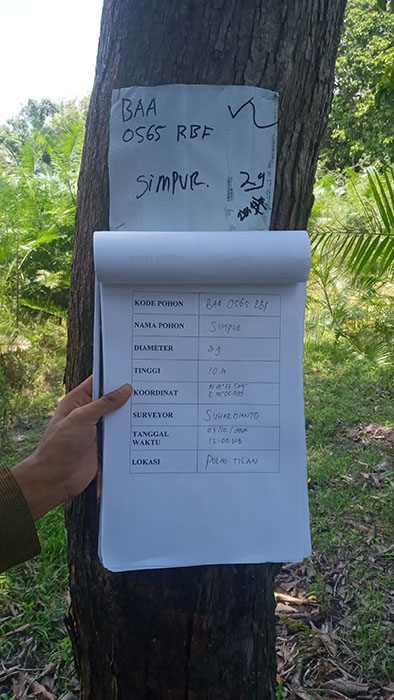 BAA
0565 RBF
SIMPUR. 29
KODE POHON BAA 0565 RBF
NAMA POHON SIMPUR
DIAMETER 29
TINGGI 10 M
KOORDINAT
SURVEYOR SUHARDIANTO
TANGGAL
WAKTU
LOKASI PULAU TILAN